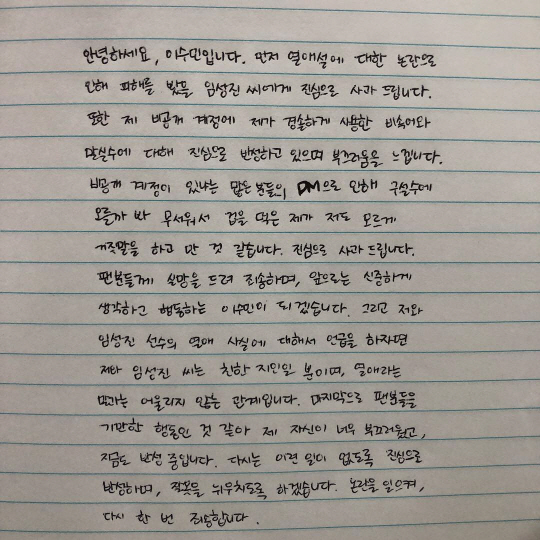 안녕하세요, 이수민입니다. 먼저 열애설에 대한 논란으로
인해 피해를 봤을 임성진 씨에게 진심으로 사과 드립니다.
또한 제 비공개 계정에 제가 경솔하게 사용한 비속어와
말실수에 대해 진심으로 반성하고 있으며 부끄러움을 느낍니다.
비공개 계정이 있냐는 많은 분들의 DM으로 인해 구설수에
오를까 봐 무서워서 겁을 먹은 제가 저도 모르게
거짓말을 하고 만 것 같습니다. 진심으로 사과 드립니다.
팬분들께 실망을 드려 죄송하며, 앞으로는 신중하게
생각하고 행동하는 이수민이 되겠습니다. 그리고 저와
임성진 선수의 열애 사실에 대해서 언급을 하자면
저와 임성진 씨는 친한 지인일 분이며, 열애라는
말과는 어울리지 않는 관계입니다. 마지막으로 팬분들을
기만한 행동인 것 같아 제 자신이 너무 부끄러웠고,
지금도 반성 중입니다. 다시는 이런 일이 없도록 진심으로
반성하며, 잘못을 뉘우치도록 하겠습니다. 논란을 일으켜,
다시 한 번 죄송합니다.